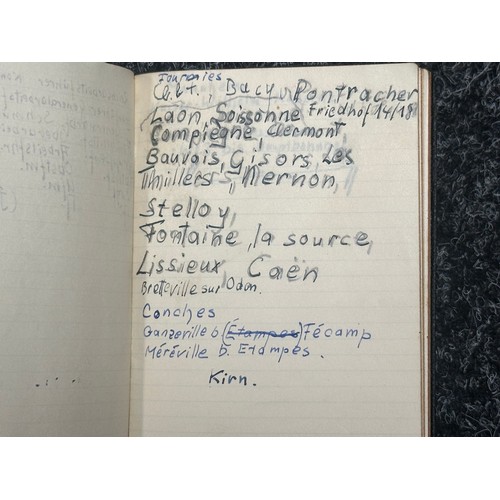 Fournies
Bacy, Pontracher
Laon, Soissonne Friedhof 14/18
Compiegne, Clermont,
Bauvais, Gisors, Les
Thillers, Mernon,
Stelloy,
Fontaine, la source,
Lissieux Caën
Bretteville sur Odon.
Conches
Ganzeville b (Étampes) Fécamp
Méréville b. Etampes.
Kirn.